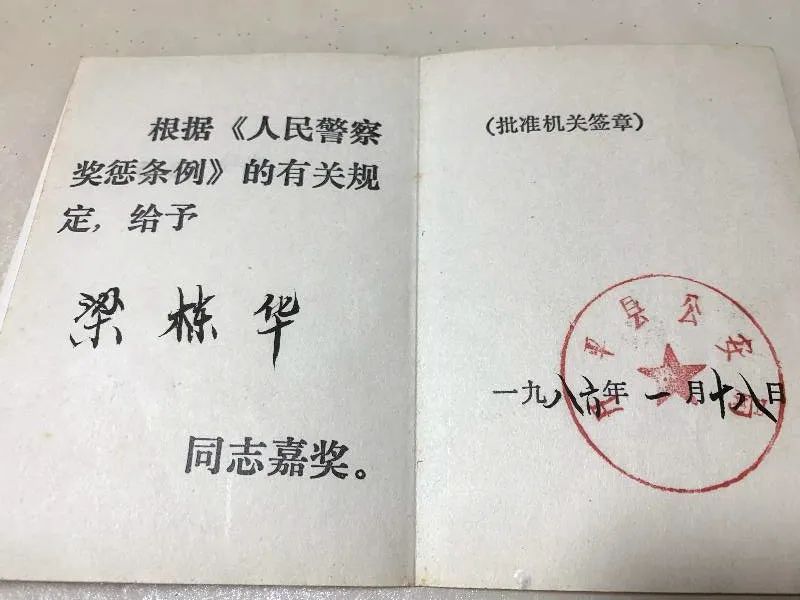 根据《人民警察
奖惩条例》的有关规
定，给予
梁栋华
同志嘉奖。
(批准机关签章)
县公安局
一九八六年一月十八日